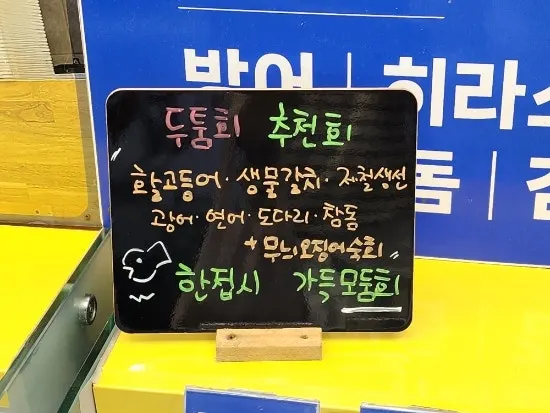 방어 | 히라스
돔 |
두툼회 추천회
활고등어·생물갈치·제철생선
광어·연어·도다리·참돔
+ 무늬오징어숙회
한접시 가득모둠회